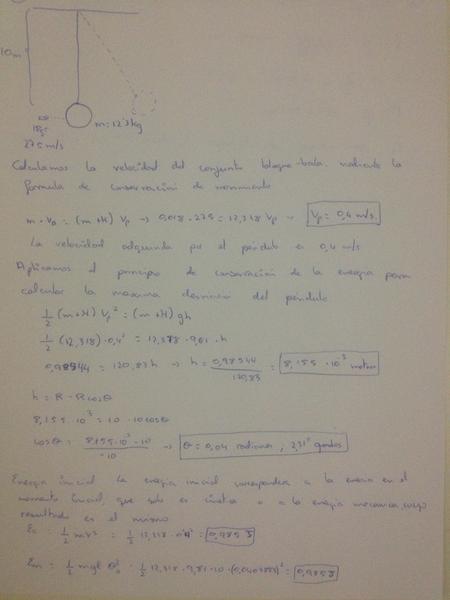 10m
m=12'3kg
18g
275 m/s
Calculamos la velocidad del conjunto bloque-bala mediante la
fórmula de conservación de movimiento
m·v₀ = (m+M) Vp → 0,018·275 = 12,318 Vp → Vp = 0,4 m/s
La velocidad adquirida por el péndulo es 0,4 m/s
Aplicamos el principio de conservación de la energía para
calcular la máxima desviación del péndulo
1/2 (m+M) Vp² = (m+M) gh
1/2 (12,318)·0,4² = 12,318·9,81·h
0,98544 = 120,83h → h = 0,98544/120,83 = 8,155·10⁻³ metros
h = R - Rcosθ
8,155·10⁻³ = 10 - 10cosθ
cosθ = 8,155·10⁻³-10/-10 → θ = 0,04 radianes; 2,31° grados
Energía inicial La energía inicial corresponde a la energía en el
momento inicial, que solo es cinética o a la energía mecánica, cuyo
resultado es el mismo
Ec = 1/2 mv² = 1/2 12,318·0'4² = 0,9853
Em = 1/2 mgl θ₀² = 1/2 12,318·9,81·10·² = 0,9853